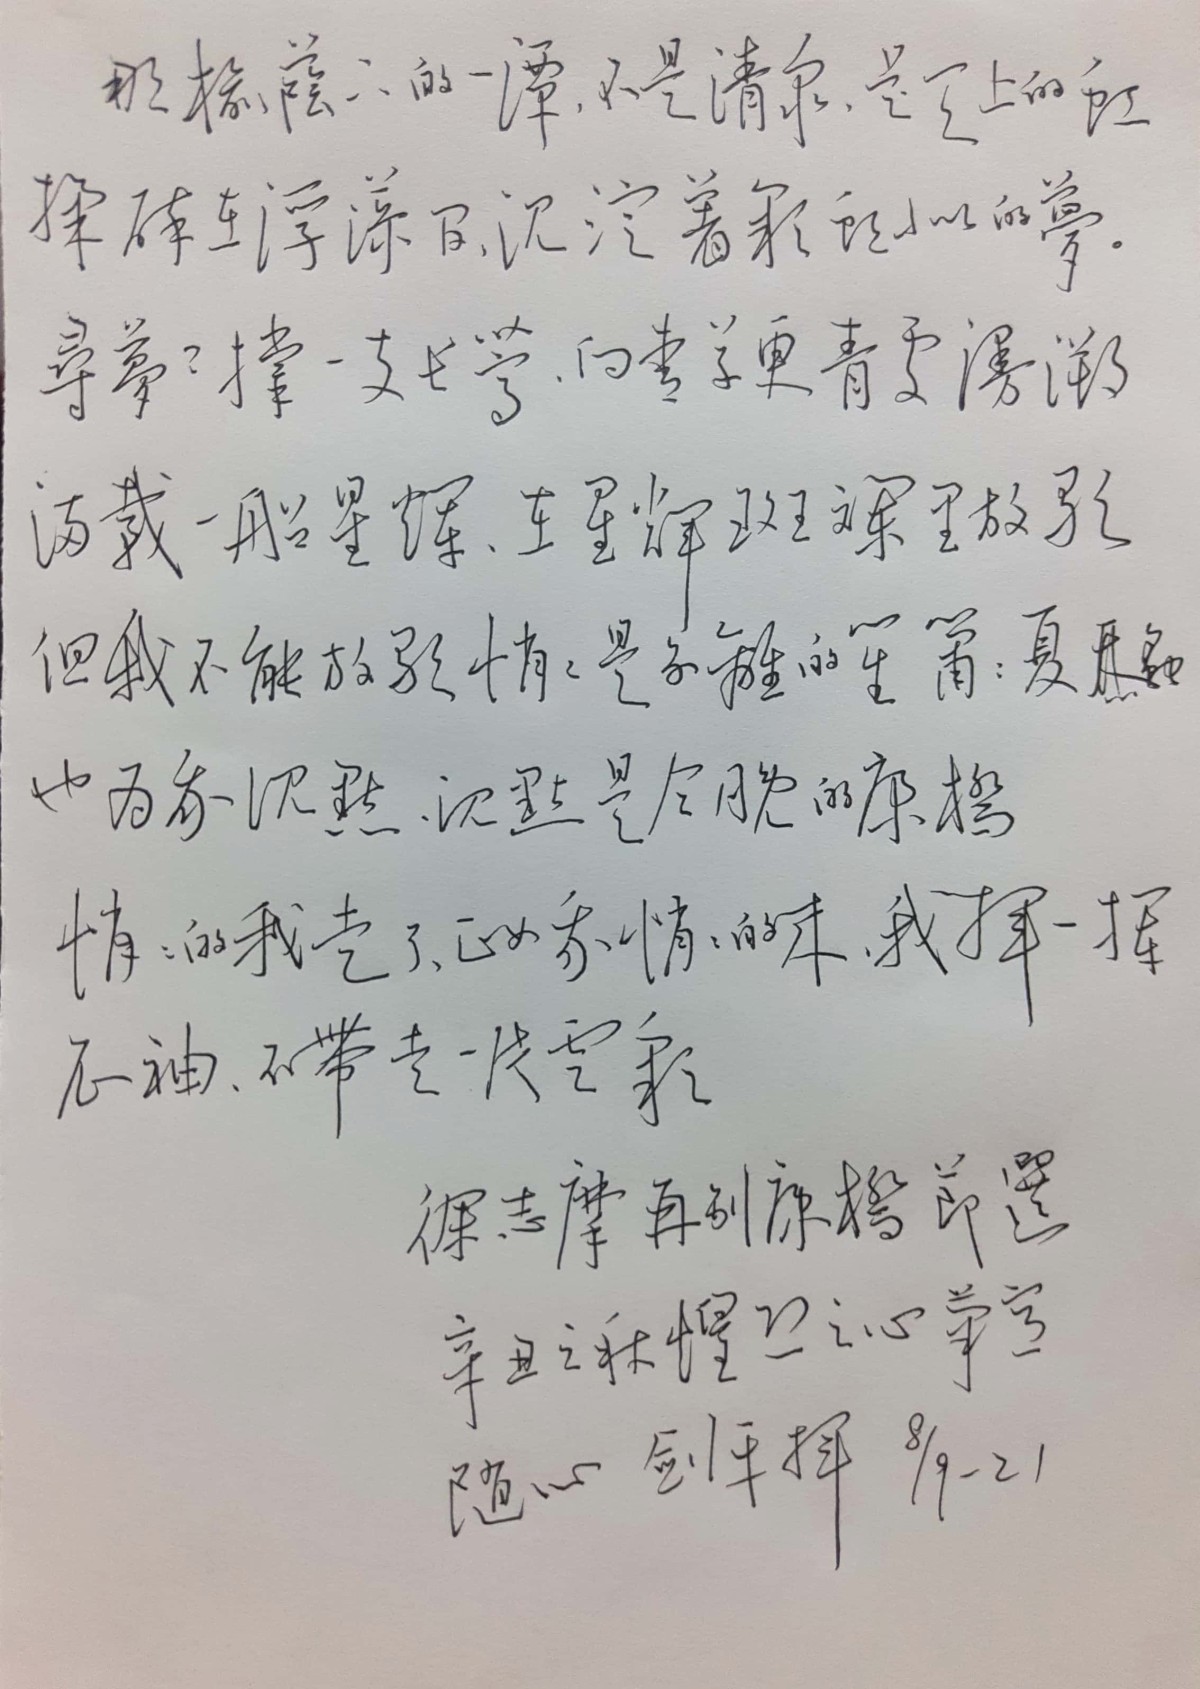 那榆蔭下的一潭、不是清泉、是天上的虹
揉碎在浮藻間、沉淀着彩虹似的夢。
尋夢?撐一支長篙、向青草更青處漫溯
滿載一船星輝、在星輝斑斕里放歌
但我不能放歌悄々是別離的笙簫:夏蟲
也為我沉默、沉默是今晚的康橋
悄々的我走了、正如我悄々的來、我揮一揮
衣袖、不帶走一片雲彩
徐志摩再別康橋節選
辛丑之秋惶恐之心草書
隨心 劍平揮 8/9-21